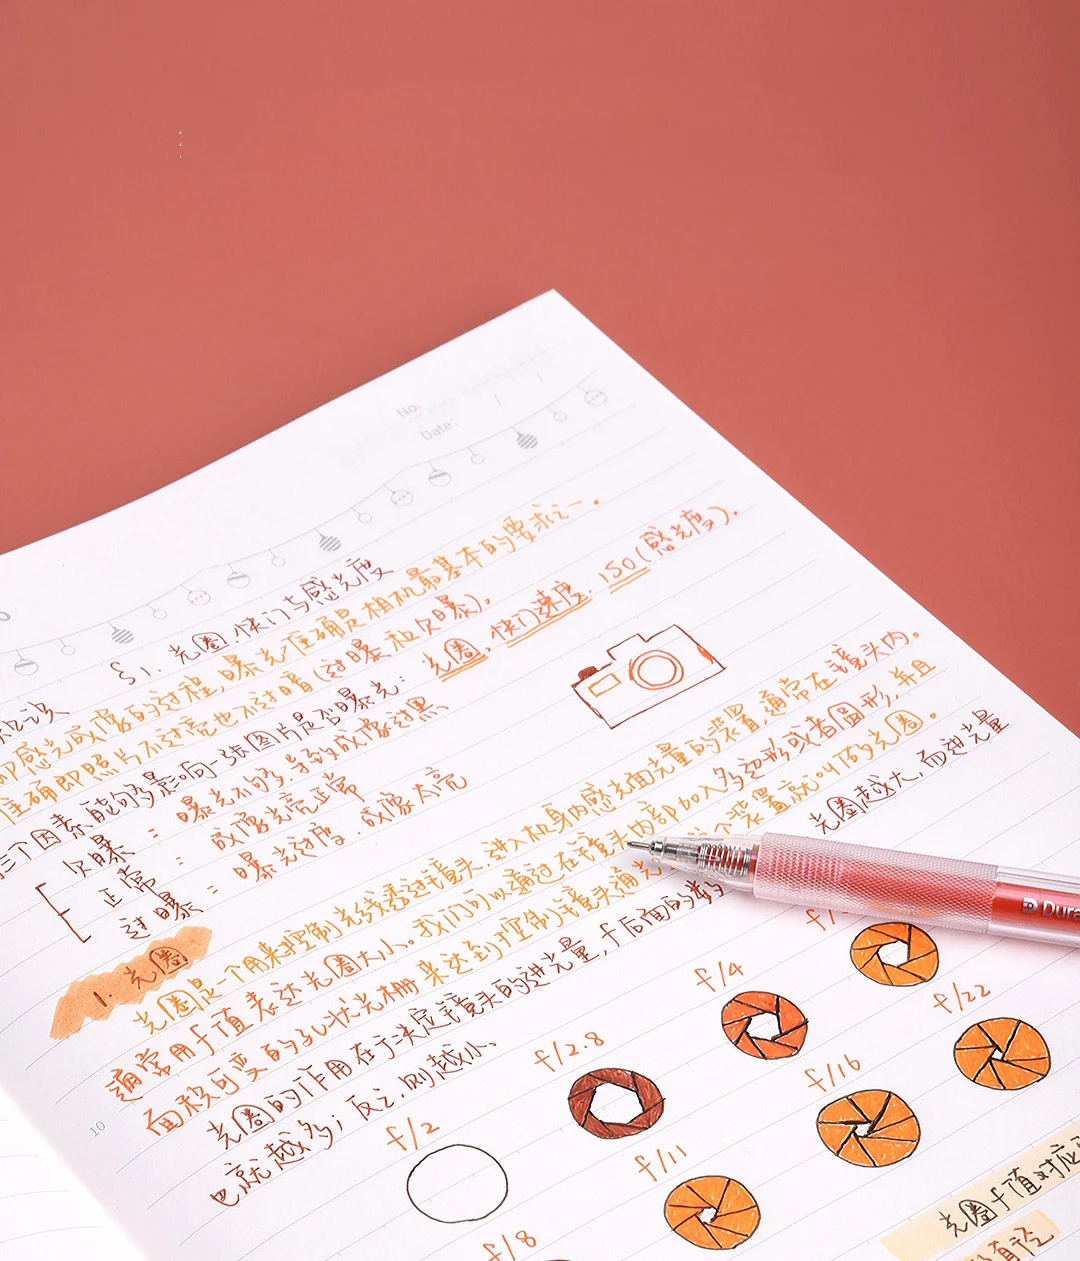 No.
Date:
§1. 光圈,快门与感光度
即感光成像的过程,曝光准确是相机最基本的要求之一。
准确即照片不过亮也不过暗(过曝和欠曝)。
三个因素能够影响一张图片是否曝光: 光圈、快门速度、ISO(感光度).
欠曝 : 曝光不够,导致成像过黑
正常 : 成像光亮正常
过曝 : 曝光过度,成像太亮
1. 光圈
光圈是一个用来控制光线透过镜头,进入机身内感光面光量的装置,通常在镜头内。
通常用f值表达光圈大小。我们可以通过在镜头内部加入多边形或者圆形,并且
面积可变的孔状光栅来达到控制镜头通光 个装置就叫作光圈。
光圈的作用在于决定镜头的进光量,f后面的数 光圈越大,而进光量
也就越多;反之,则越小、
f/2
f/2.8
f/4
f/
f/8
f/11
f/16
f/22
光圈f值对应
直径
10
Dura